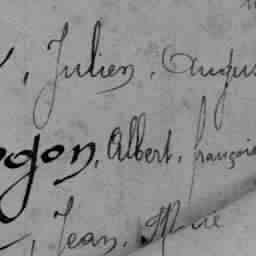 , Julien, Augus
gon, Albert, françois
, Jean, Marie